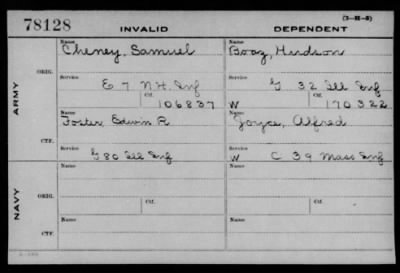 78128 INVALID DEPENDENT (3-H-5)
ARMY
ORIG.
Name Name
Cheney, Samuel Boaz, Hudson
Service Service
E 7 N.H. Inf G 32 Ill Inf
Ctf. Ctf.
106837 W 170322
CTF.
Name Name
Foster Edwin R Joyce, Alfred
Service Service
G 80 Ill Inf W C 39 Mass Inf
NAVY
ORIG.
Name Name
Ctf. Ctf.
CTF.
Name Name